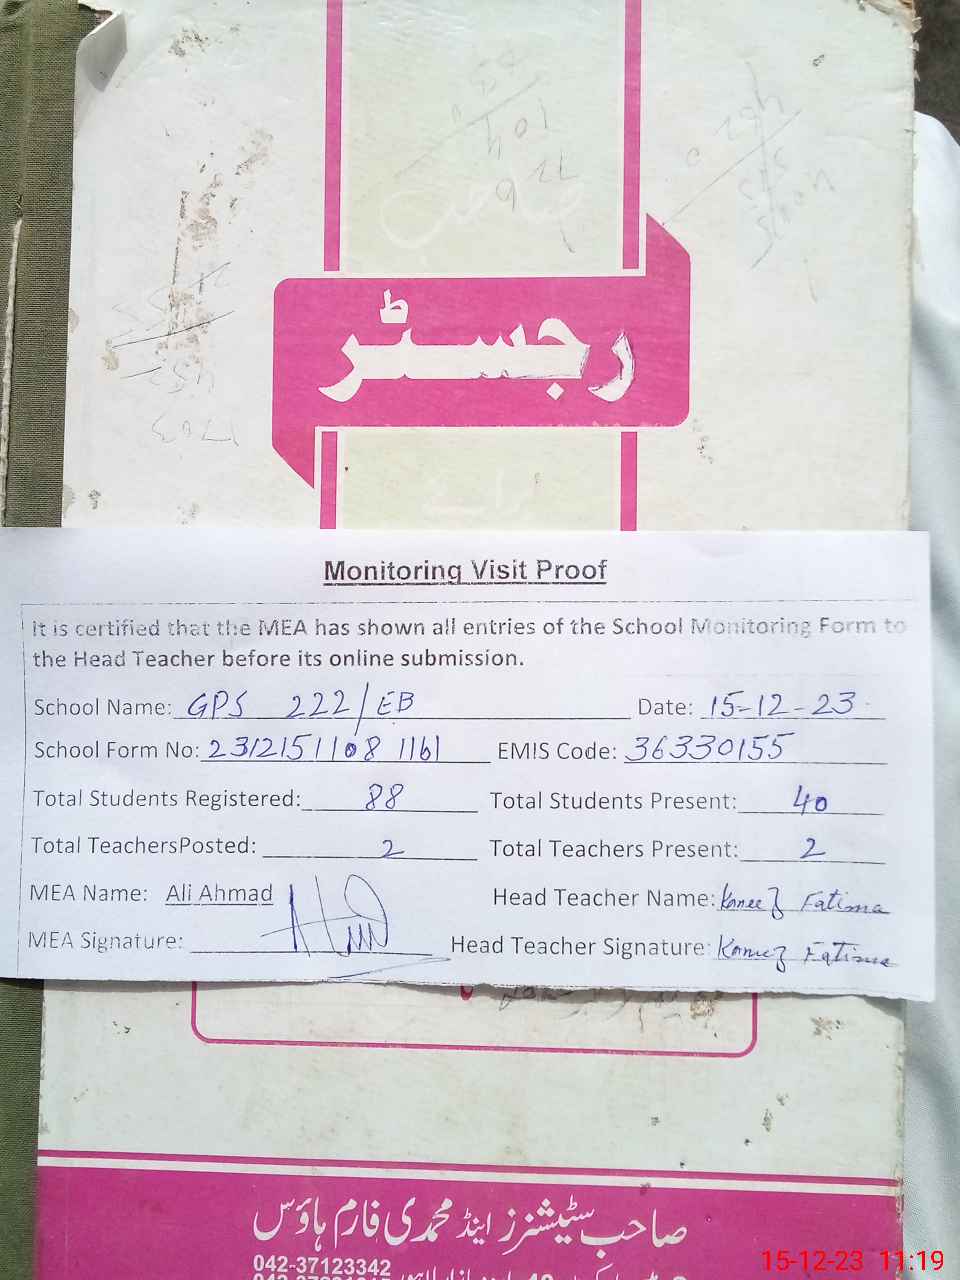 رجسٹر
Monitoring Visit Proof
It is certified that the MEA has shown all entries of the School Monitoring Form to
the Head Teacher before its online submission.
School Name: GPS 222/EB Date: 15-12-23
School Form No: 23121511081161 EMIS Code: 36330155
Total Students Registered: 88 Total Students Present: 40
Total TeachersPosted: 2 Total Teachers Present: 2
MEA Name: Ali Ahmad Head Teacher Name: Kaneez Fatima
MEA Signature: Head Teacher Signature: Kaneez Fatima
صاحب سٹیشنرز اینڈ محمدی فارم ہاؤس
042-37123342
15-12-23 11:19